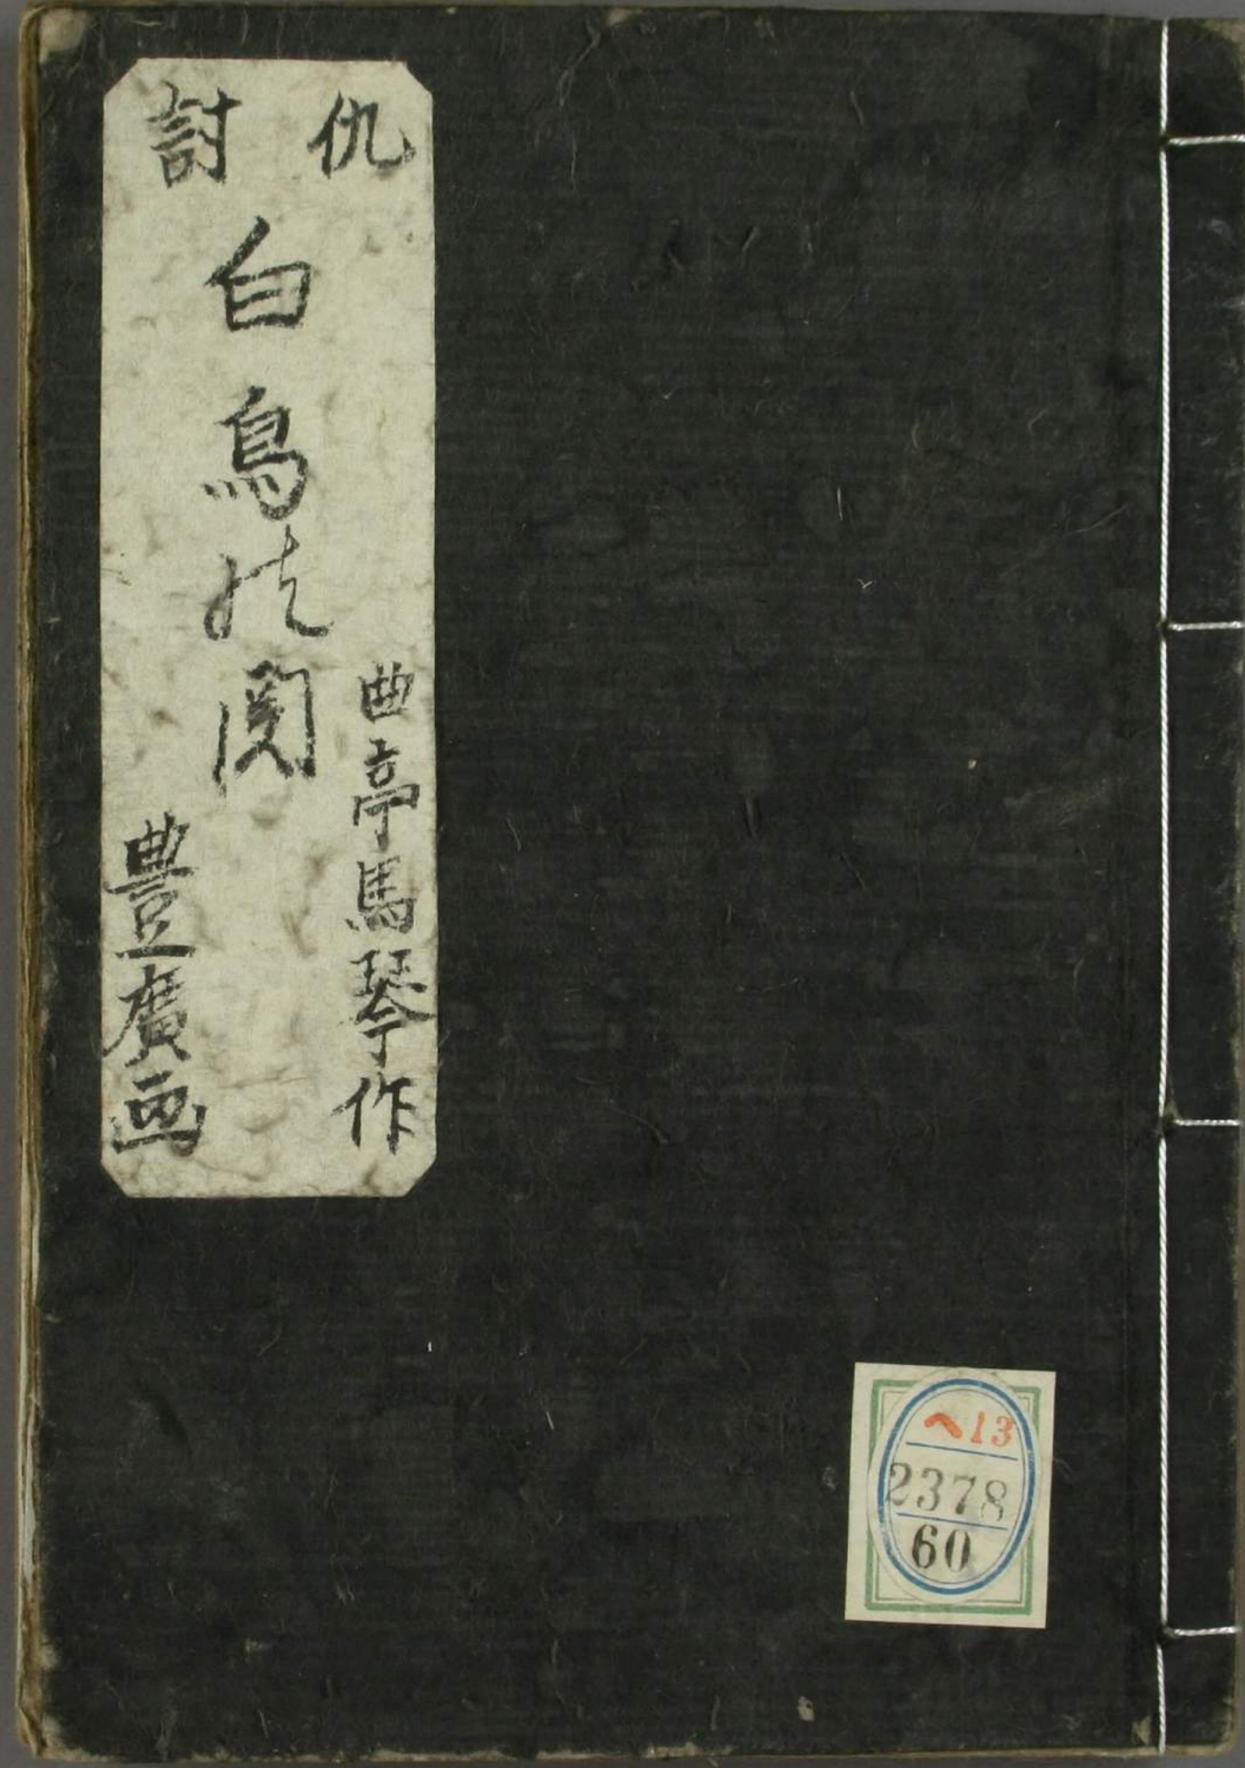 仇討
白鳥能関
曲亭馬琴作
豊廣画
ヘ13
2378
60